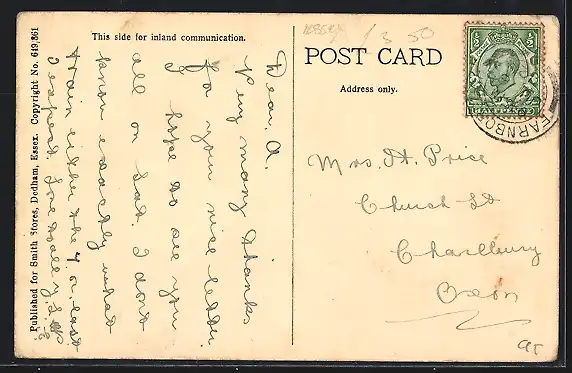 This side for inland communication.
POST CARD
Address only.
HALFPENNY
FARNBO
Published for Smith Stores, Dedham, Essex. Copyright No. 619/861
Dear. A.
very many thanks
for you nice letter.
I hope to see you
all on Sat. I dont
know exactly what
train either the 7 or last
I expect. Love to all
Mrs. H. Price
Church St
Charlbury
Oxon